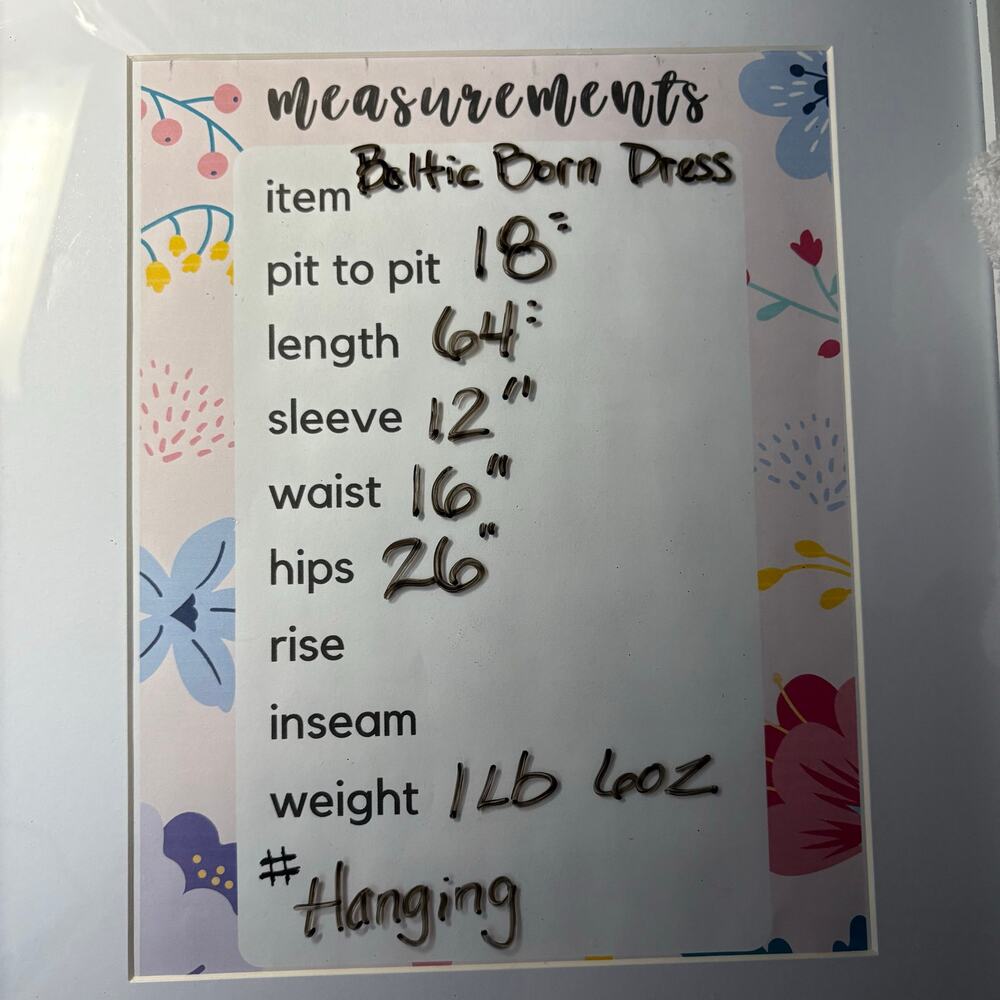 measurements
item Baltic Born Dress
pit to pit 18"
length 64"
sleeve 12"
waist 16"
hips 26"
rise
inseam
weight 1Lb 6oz
# Hanging